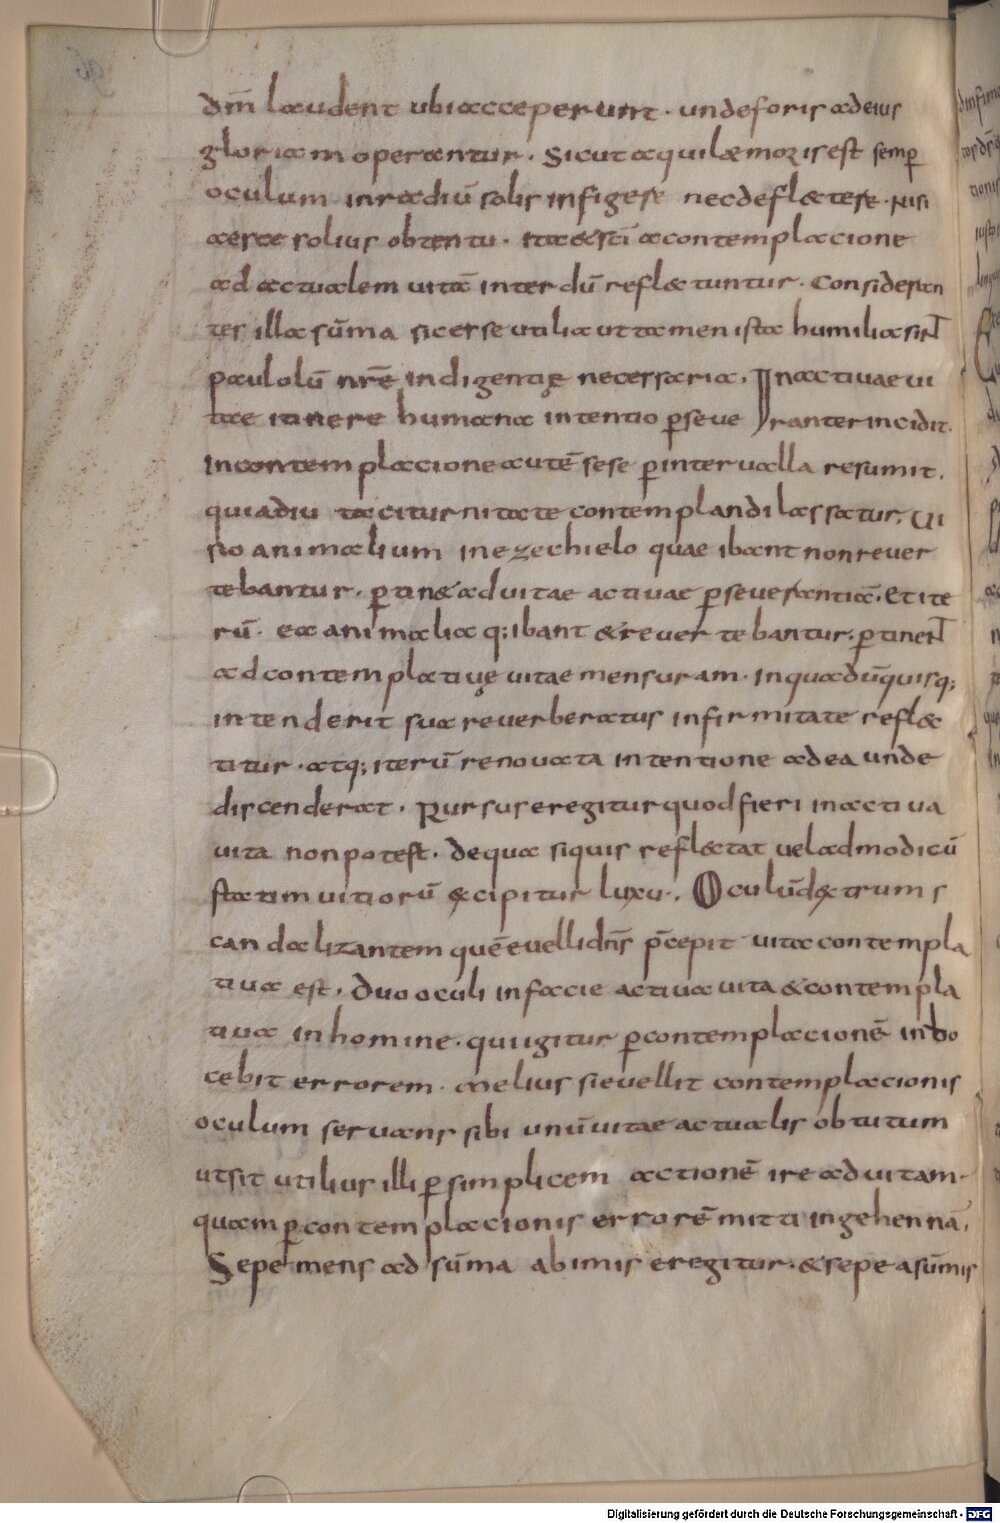 dm̄ laudent ubi acceperunt · unde foris ad eius
gloriam operantur. Sicut aquilae moris est semp̱
oculum in radiū solis infigere nec deflectere · Nisi
aescae solius obtentu. Ita & sc̄i a contemplacione
ad actualem uitā interdū reflectuntur. Consideran
tes illa sūma sic esse utilia ut tamen ista humilia sint
paululū nr̄ę indigentię necessaria. In actiuae ui
tae itinere humana intentio p̱seueranter incidit.
In contemplacione autē sese p̱ interualla resumit.
quia diu taciturnitate contemplandi lassatur. Ui
sio animalium in ezechielo quae ibant non reuer
tebantur. p̱tin& ad uitae actiuae p̱seuerantiā. Et ite
rū · ea animalia q; ibant & reuertebantur. p̱tinent
ad contemplatiuę uitae mensuram. In qua dū quisq;
intenderit sua reuerberatus infirmitate reflec
titur · atq; iterū renouata intentione ad ea unde
discenderat. Rursus eregitur quod fieri in actiua
uita non potest. De qua siquis reflectat uel ad modicū
statim uitiorū excipitur luxu. Oculū dextrum s
candalizantem quē euelli dn̄s p̄cepit uita contempla
tiua est. Duo oculi in facie actiua uita & contempla
tiua in homine. qui igitur p̱ contemplacionē indo
cebit errorem. Melius si euellit contemplacionis
oculum seruans sibi unū uitae actualis obtutum
ut sit utilius illi p̱ simplicem actionē ire ad uitam.
quam p̱ contemplacionis errorē mitti in gehennā.
Sepe mens ad sūma ab imis eregitur. & sepe a sūmis
Digitalisierung gefördert durch die Deutsche Forschungsgemeinschaft - DFG